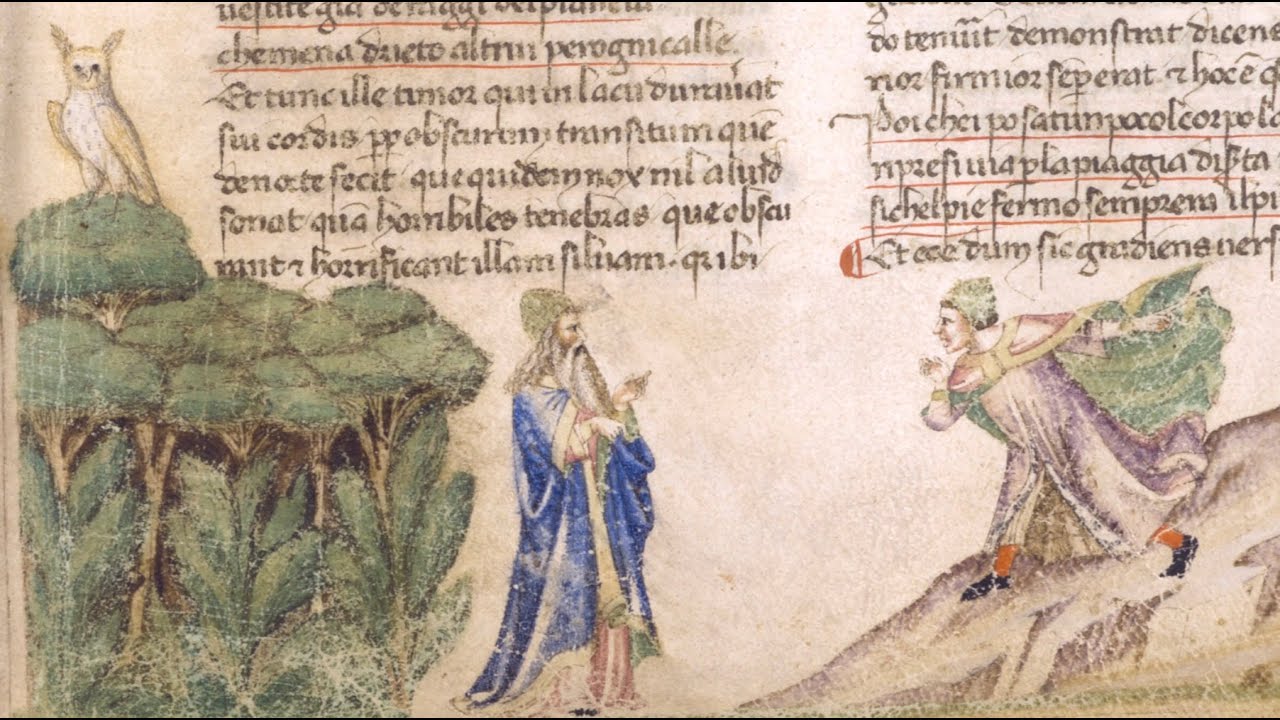 vestite gia de raggi del pianeta
che mena dricto altrui per ogni calle.
Et tunc ille timor qui in lacu duruuat
sui cordis pp obscurum transitum quē
de nocte fecit que quidem nox nil aliud
sonat quā horribiles tenebras que obscu
rant ⁊ horrificant illam siluam. qr ibi
do tenuit demonstrat dicens
rior firmior seper erat ⁊ hoc ē
Poi chei posatun pocolcorpo la
npresi uia p la piaggia diserta
sichelpie fermo sempre mera lpi
Et ecce dum sic gradiens uers